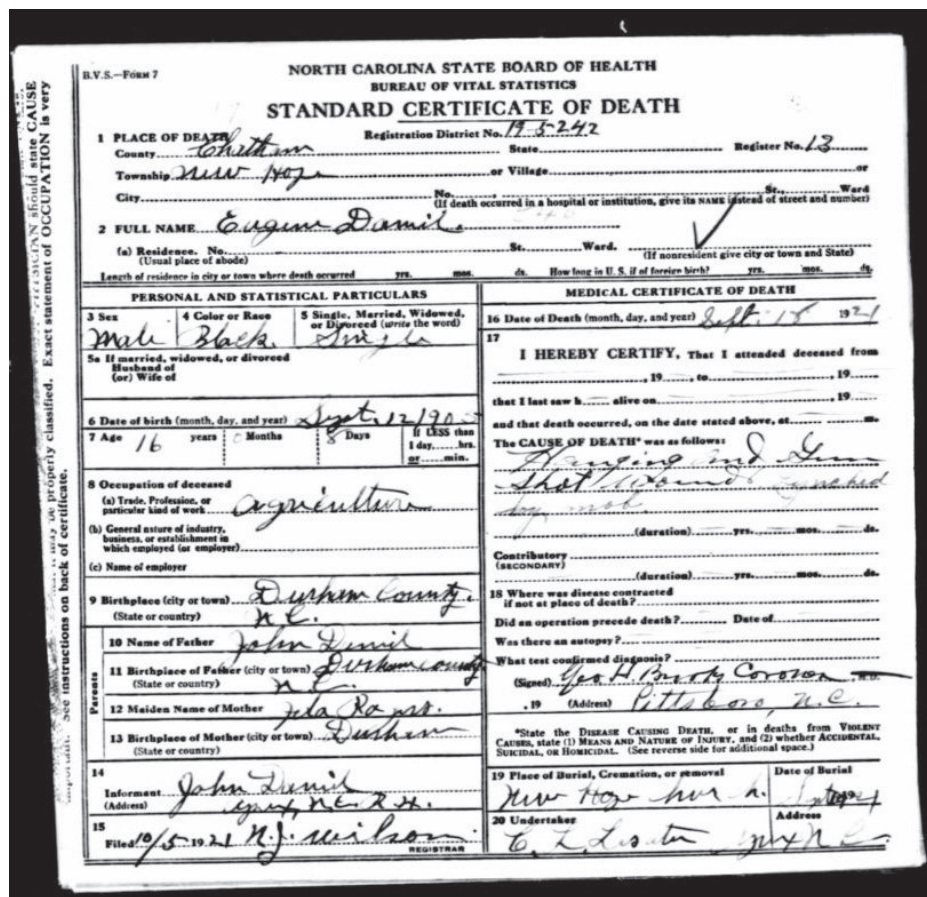 B.V.S.—FORM 7
NORTH CAROLINA STATE BOARD OF HEALTH
BUREAU OF VITAL STATISTICS
STANDARD CERTIFICATE OF DEATH
1 PLACE OF DEATH Registration District No. 19-5242
County Chatham State Register No. 13
Township New Hope or Village or
City No. St., Ward
(If death occurred in a hospital or institution, give its NAME instead of street and number)
2 FULL NAME Eugene Daniel
(a) Residence. No. St. Ward.
(Usual place of abode) (If nonresident give city or town and State)
Length of residence in city or town where death occurred yrs. mos. ds. How long in U. S. if of foreign birth? yrs. mos. ds.
PERSONAL AND STATISTICAL PARTICULARS
3 Sex 4 Color or Race 5 Single, Married, Widowed, or Divorced (write the word)
Male Black. Single
5a If married, widowed, or divorced
Husband of
(or) Wife of
6 Date of birth (month, day, and year) Sept. 12 1905
7 Age 16 years 0 Months 8 Days If LESS than
1 day, hrs.
or min.
8 Occupation of deceased
(a) Trade, Profession, or
particular kind of work agriculture
(b) General nature of industry,
business, or establishment in
which employed (or employer)
(c) Name of employer
9 Birthplace (city or town) Durham County.
(State or country) N.C.
Parents
10 Name of Father John Daniel
11 Birthplace of Father (city or town) Durham County
(State or country) N.C.
12 Maiden Name of Mother
13 Birthplace of Mother (city or town) Durham
(State or country)
14
Informant John Daniel
(Address) N.C. R.4.
15
Filed 10/5 1921 N.J. Wilson
REGISTRAR
MEDICAL CERTIFICATE OF DEATH
16 Date of Death (month, day, and year) Sept. 18 1921
17
I HEREBY CERTIFY, That I attended deceased from
, 19 , to , 19
that I last saw h alive on , 19
and that death occurred, on the date stated above, at m.
The CAUSE OF DEATH* was as follows:
Hanging and Gun
shot wound Lynched
by mob.
(duration) yrs. mos. ds.
Contributory
(SECONDARY)
(duration) yrs. mos. ds.
18 Where was disease contracted
if not at place of death?
Did an operation precede death? Date of
Was there an autopsy?
What test confirmed diagnosis?
(Signed) Geo H. Brooks Coroner M.D.
, 19 (Address) Pittsboro, N.C.
*State the DISEASE CAUSING DEATH, or in deaths from VIOLENT
CAUSES, state (1) MEANS AND NATURE OF INJURY, and (2) whether ACCIDENTAL,
SUICIDAL, OR HOMICIDAL. (See reverse side for additional space.)
19 Place of Burial, Cremation, or removal Date of Burial
New Hope 1921
20 Undertaker Address
C. L. N.C.
should state CAUSE
Exact statement of OCCUPATION is very
may be properly classified.
See instructions on back of certificate.